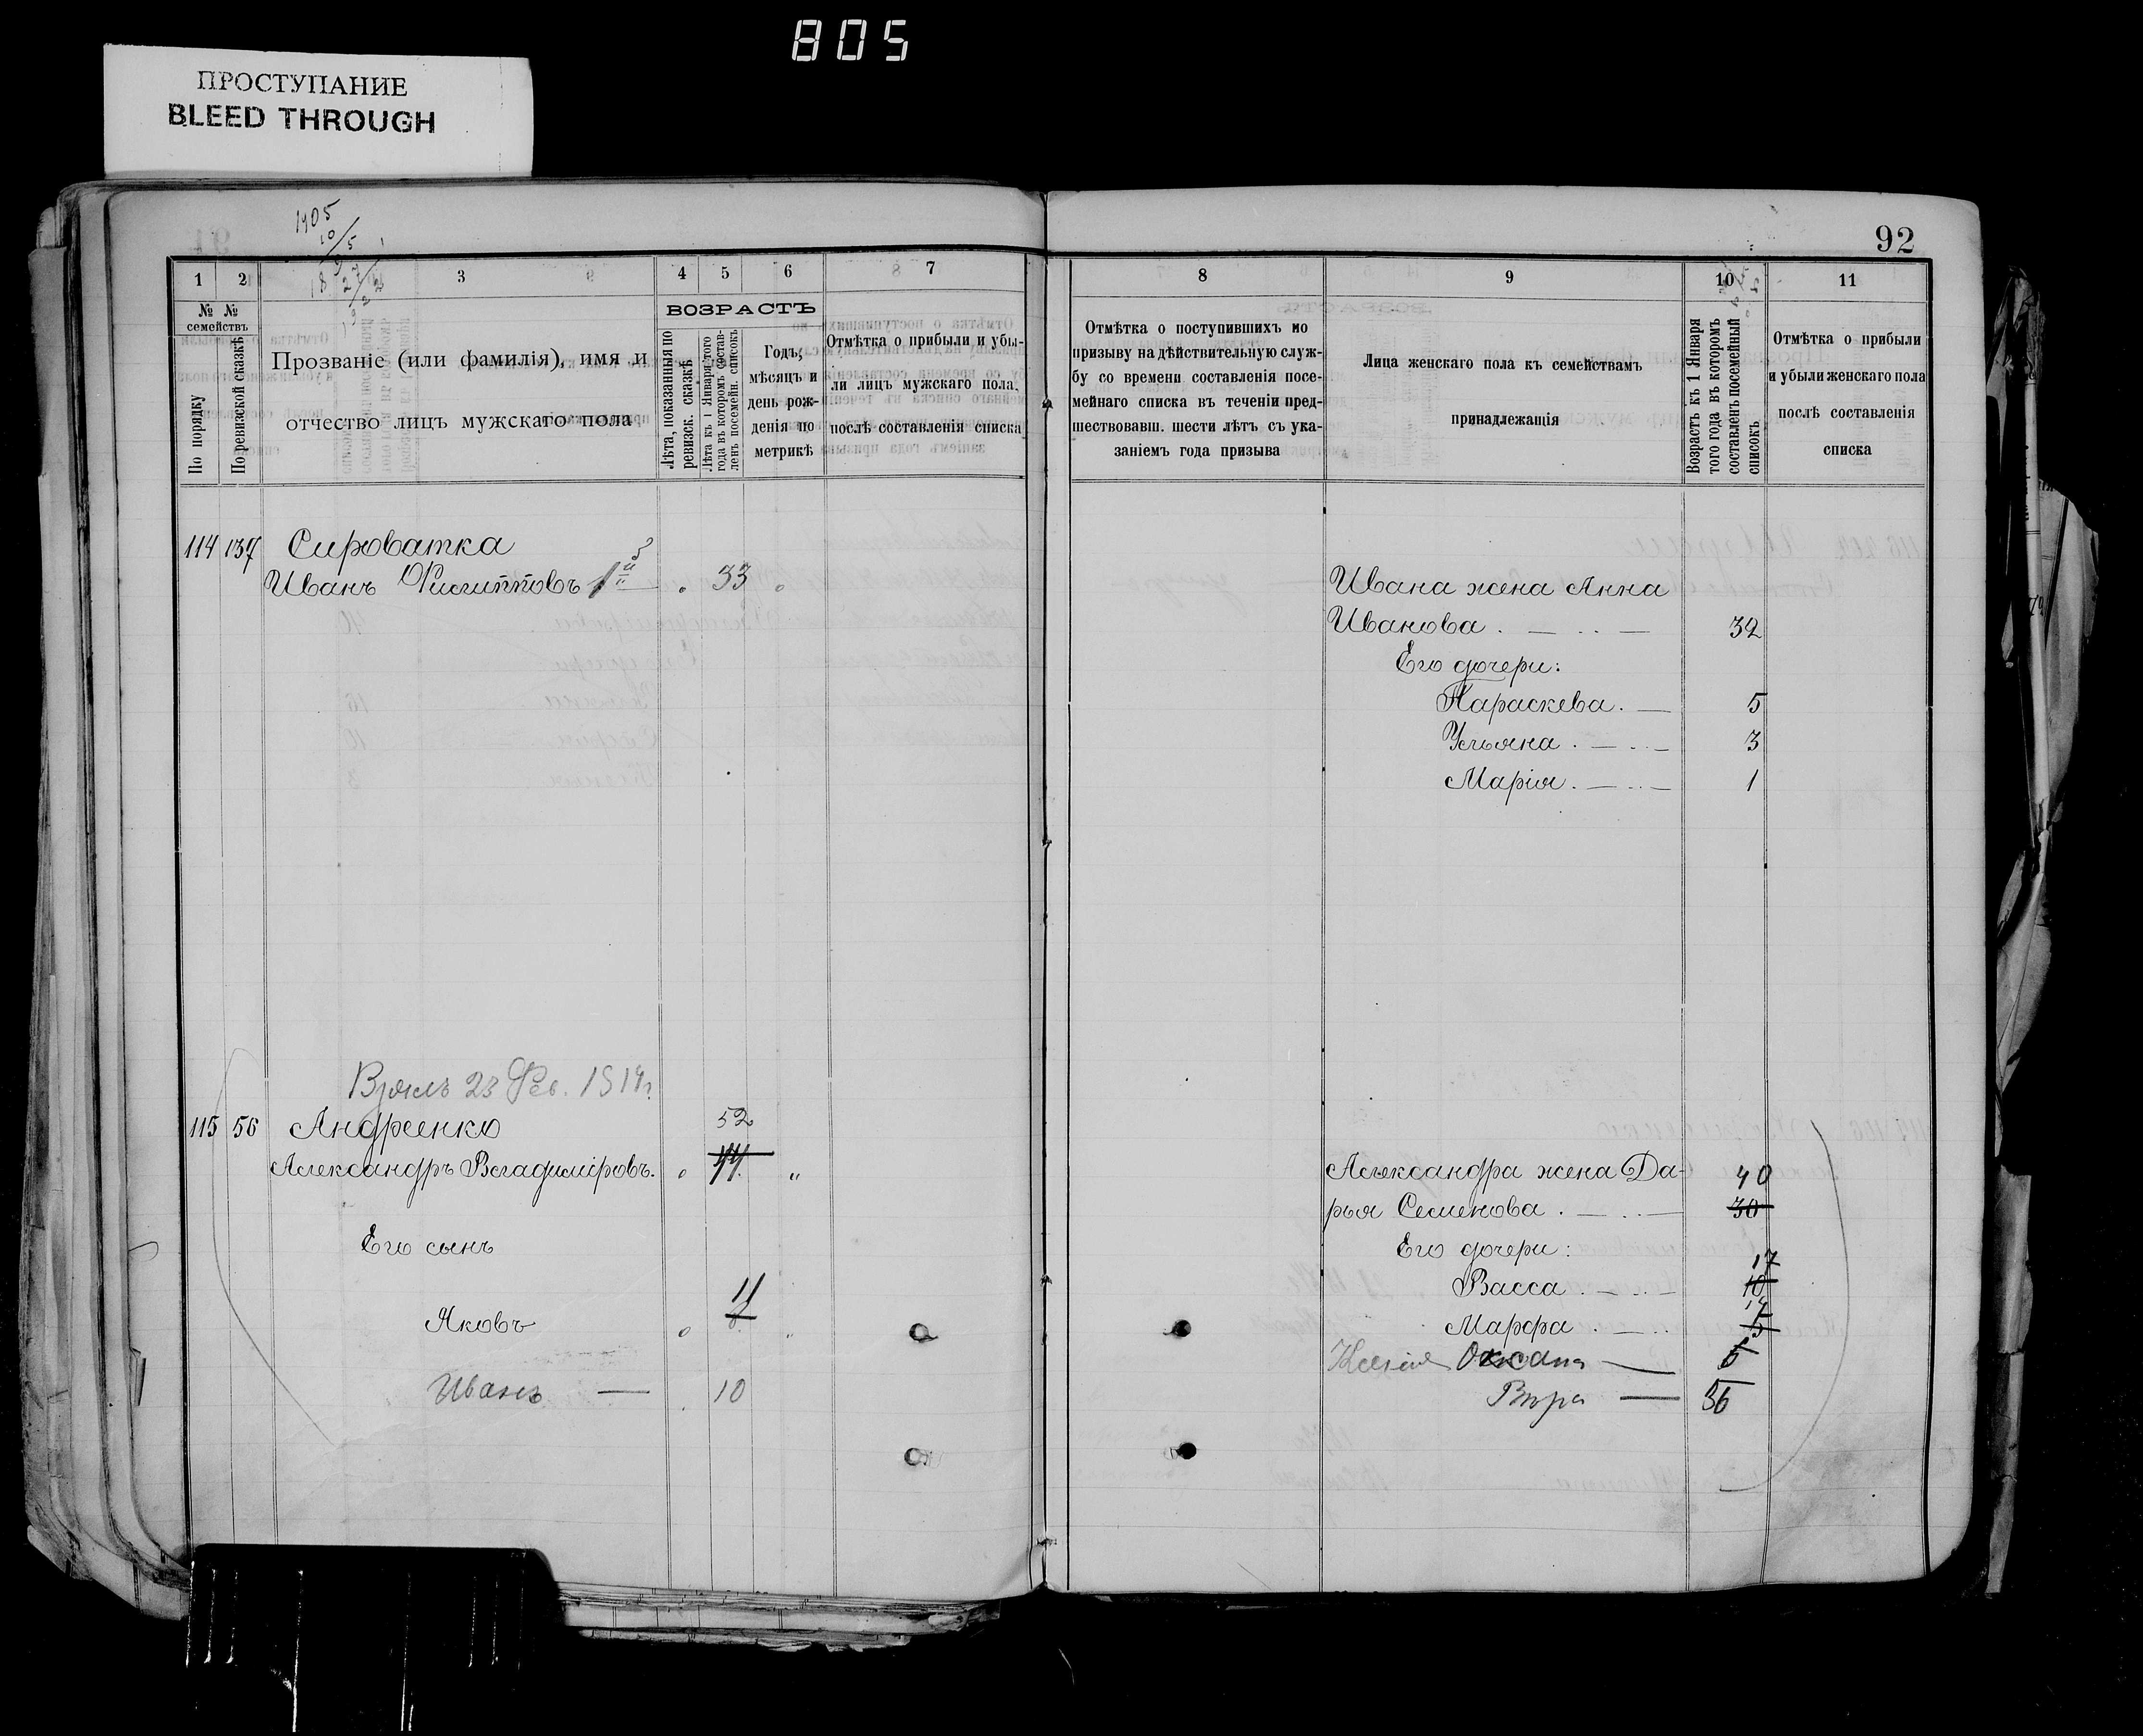 805
ПРОСТУПАНИЕ
BLEED THROUGH
92
1905
1 2 3 4 5 6 7
№ № семействъ
По порядку
По ревизской сказкѣ
Прозваніе (или фамилія), имя и
отчество лицъ мужскаго пола
ВОЗРАСТЪ
Лѣта, показанныя по
ревизск. сказкѣ
Лѣта къ 1 Января того
года въ которомъ состав-
ленъ посемейн. списокъ
Годъ,
мѣсяцъ и
день рож-
денія по
метрикѣ
Отмѣтка о прибыли и убы-
ли лицъ мужскаго пола
послѣ составленія списка
8 9 10 11
Отмѣтка о поступившихъ по
призыву на дѣйствительную служ-
бу со времени составленія посе-
мейнаго списка въ теченіи пред-
шествовавш. шести лѣтъ съ ука-
заніемъ года призыва
Лица женскаго пола къ семействамъ
принадлежащія
Возрастъ къ 1 Января
того года въ которомъ
составленъ посемейный
списокъ
Отмѣтка о прибыли
и убыли женскаго пола
послѣ составленія
списка
114 137 Сироватка
Иванъ Филипповъ 1й 33
Ивана жена Анна
Иванова 32
Его дочери:
Параскева 5
Ульяна 3
Марія 1
Взялъ 23 Фев. 1914г.
115 56 Андреенко 52
Александръ Владиміровъ 44
Его сынъ
Яковъ 11
Иванъ 10
Александра жена Да- 40
рья Семенова 30
Его дочери: 17
Васса 10
Марфа
Ксенія Оксана 6
Вѣра 36